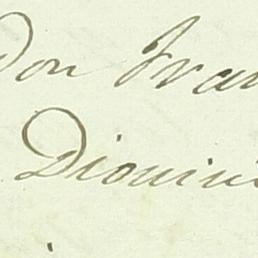 Don Fran
Dionini